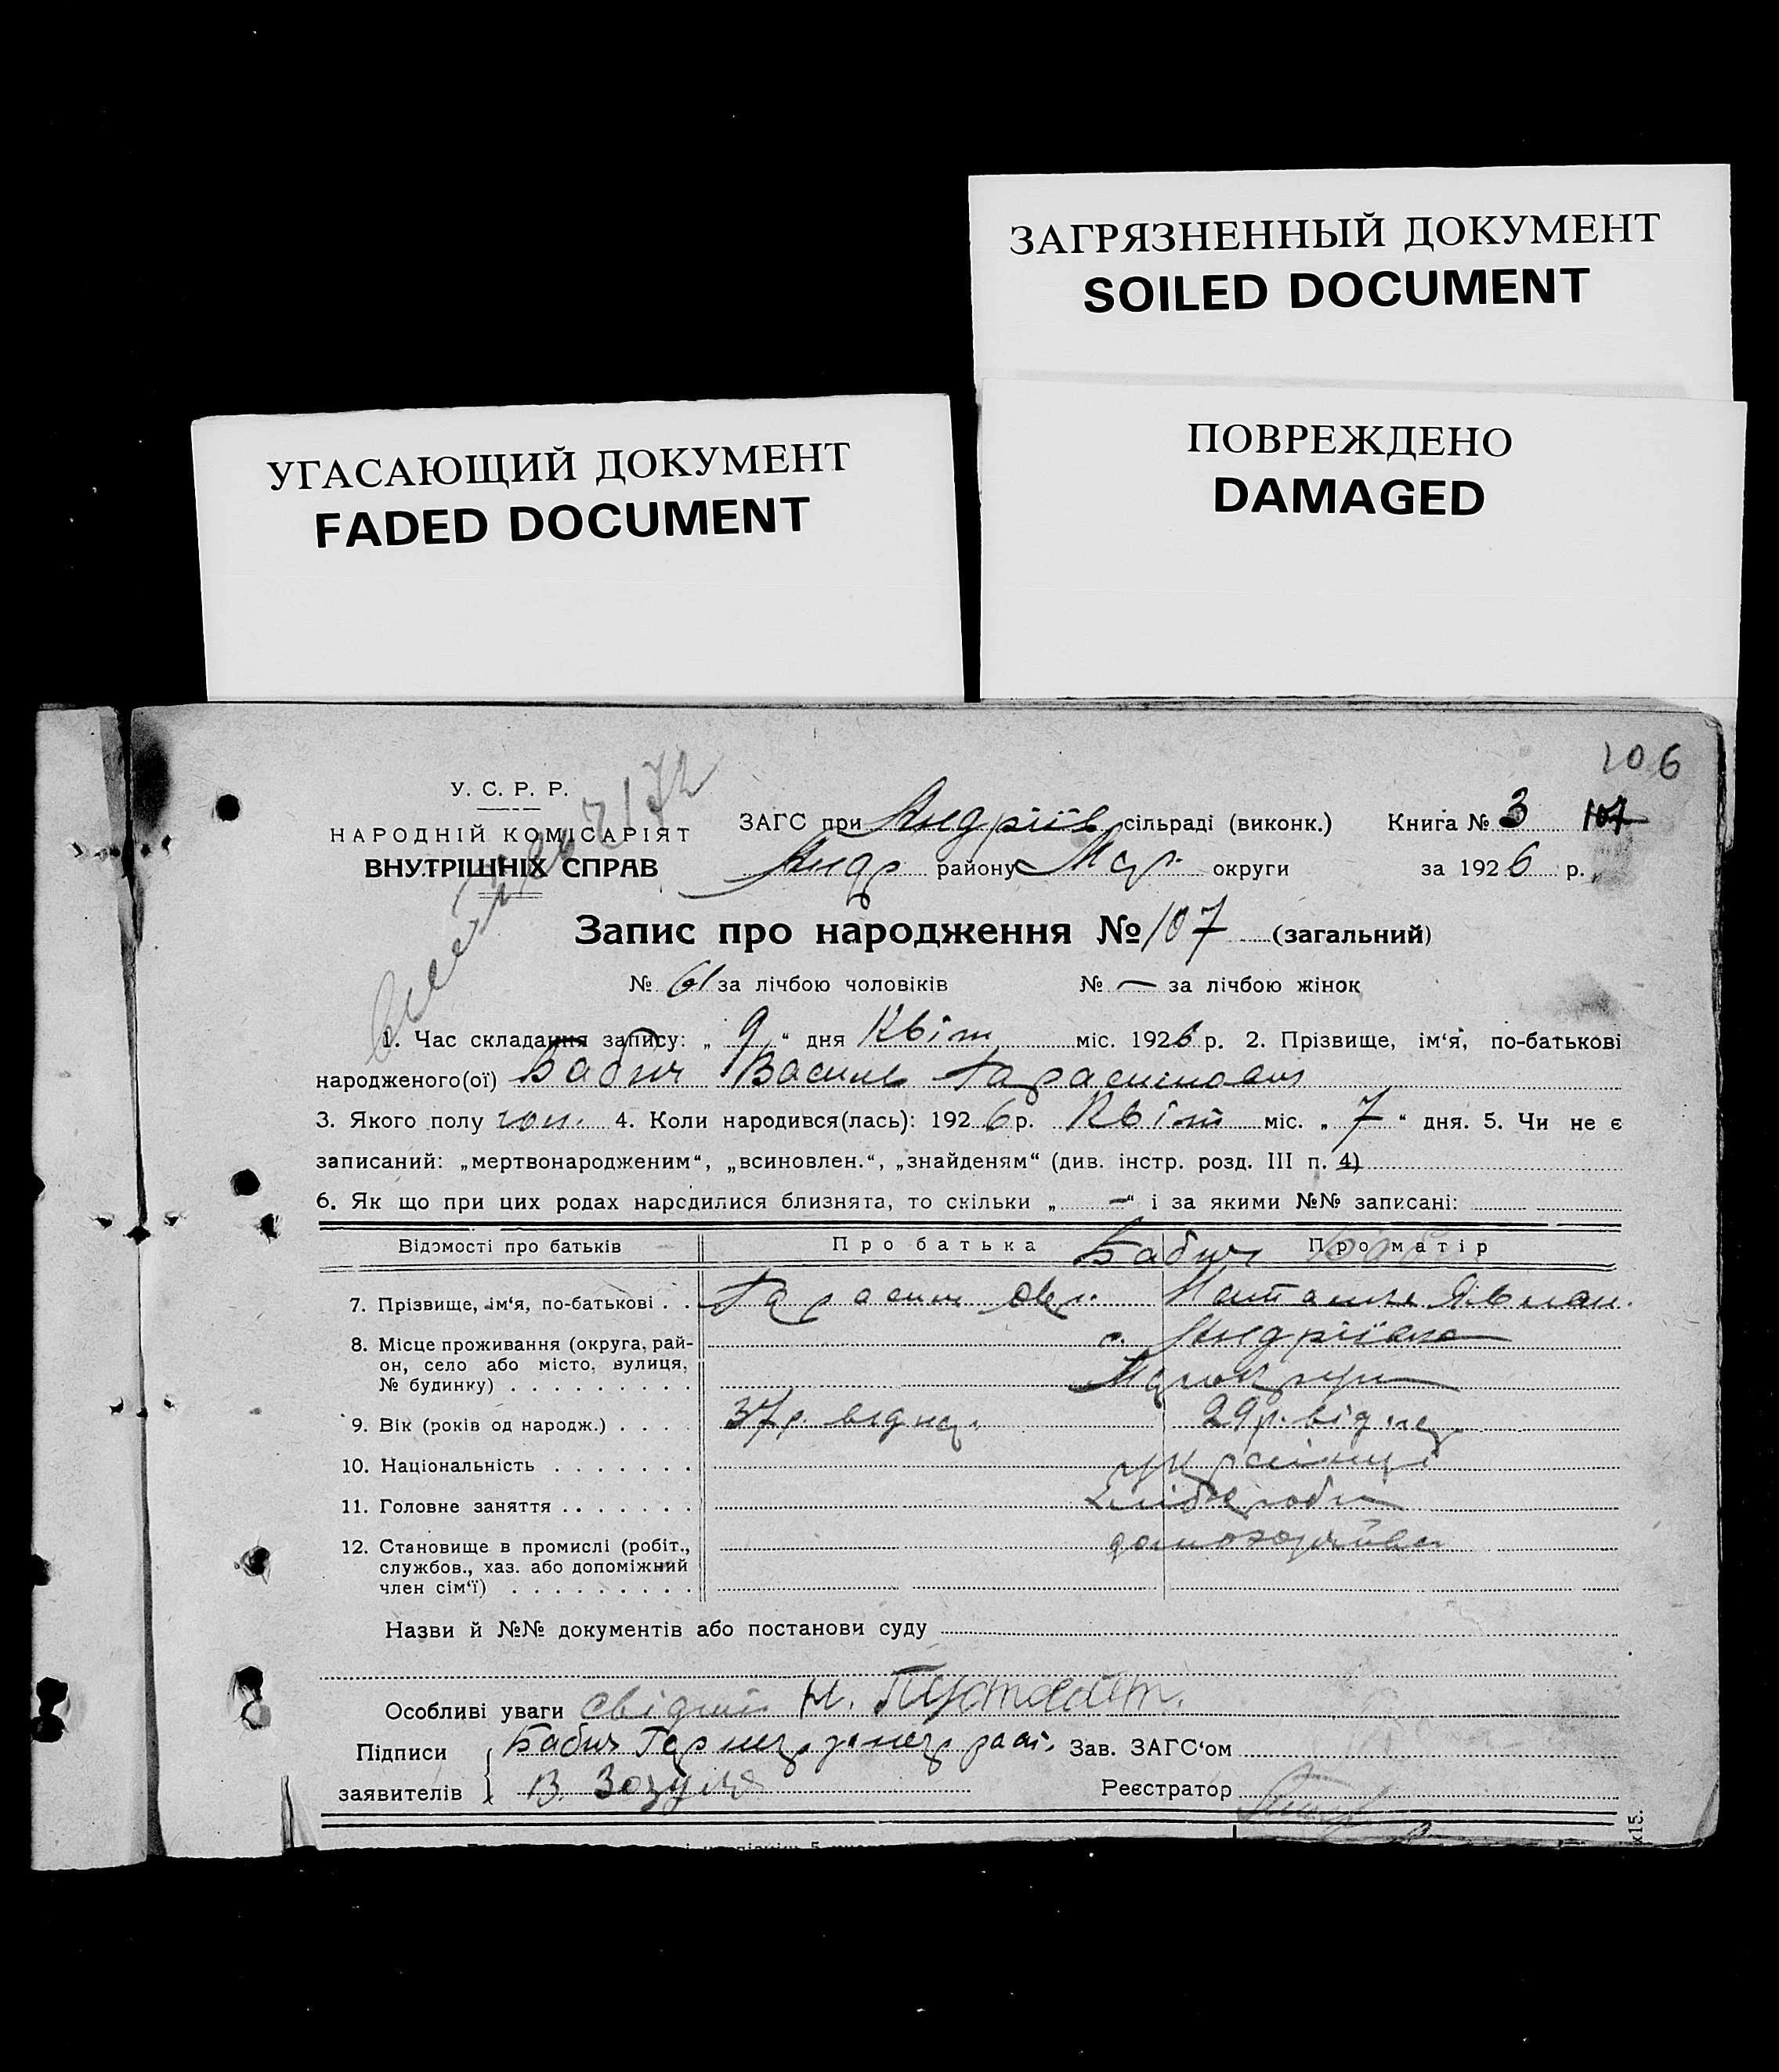 ЗАГРЯЗНЕННЫЙ ДОКУМЕНТ
SOILED DOCUMENT
УГАСАЮЩИЙ ДОКУМЕНТ
FADED DOCUMENT
ПОВРЕЖДЕНО
DAMAGED
106
У. С. Р. Р.
НАРОДНІЙ КОМІСАРІЯТ
ВНУТРІШНІХ СПРАВ
ЗАГС при Андріїв сільраді (виконк.) Книга № 3 107
Андр району Мар. округи за 1926 р.
Запис про народження № 107 (загальний)
№ 61 за лічбою чоловіків № — за лічбою жінок
1. Час складання запису: „ 9 “ дня Квіт міс. 1926 р. 2. Прізвище, ім‘я, по-батькові
народженого(ої) Бабич Василь Гарасимович
3. Якого полу чол. 4. Коли народився(лась): 1926 р. Квіт міс. „ 7 “ дня. 5. Чи не є
записаний: „мертвонародженим“, „всиновлен.“, „знайденям“ (див. інстр. розд. III п. 4)
6. Як що при цих родах народилися близнята, то скільки „ — “ і за якими №№ записані:
Відомості про батьків Про батька Про матір
Бабич
7. Прізвище, ім‘я, по-батькові . . Гарасим
8. Місце проживання (округа, рай-
он, село або місто, вулиця,
№ будинку) . . . . . . . . .
с. Андріївка
9. Вік (років од народж.) . . . . 37 р. від на. 29 р. від на
10. Національність . . . . . . . українці
11. Головне заняття . . . . . . . хлібороби
12. Становище в промислі (робіт.,
службов., хаз. або допоміжний
член сім‘ї) . . . . . . . . .
Назви й №№ документів або постанови суду
Особливі уваги свідки
Підписи
заявителів
Бабич
В. Зозуля
Зав. ЗАГС‘ом
Реєстратор
х15.